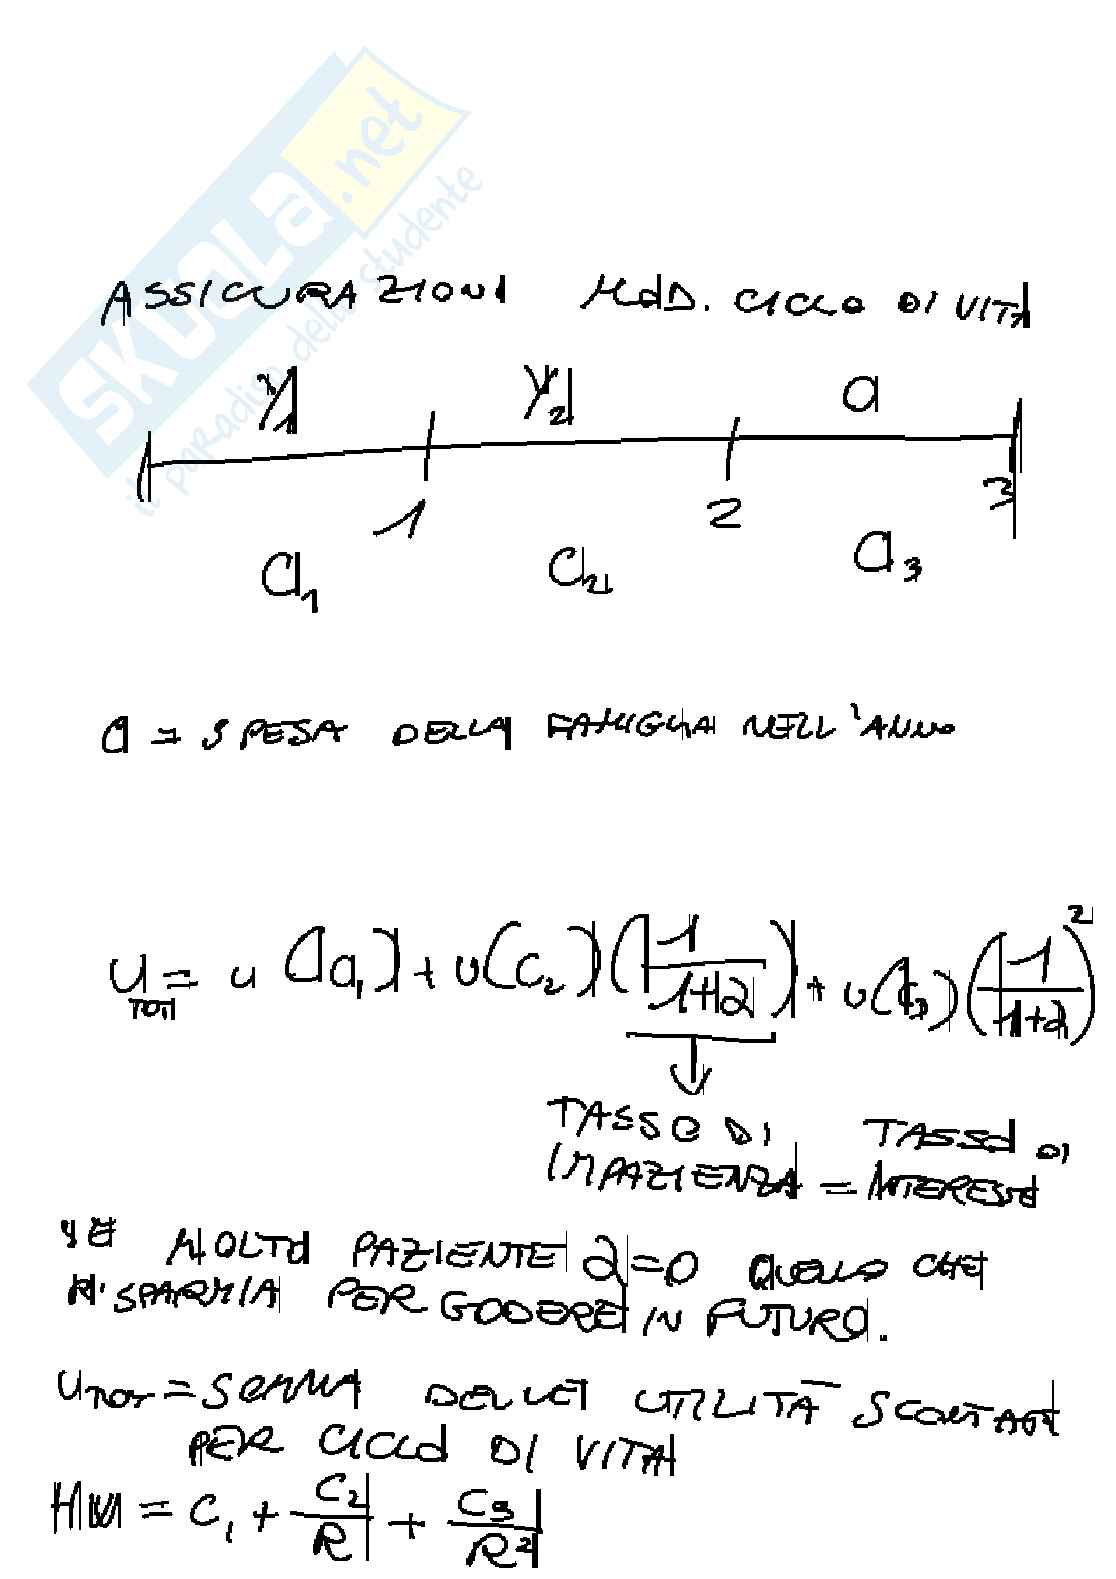 SKUOLA.net
il paradiso dello studente
ASSICURAZIONI MOD. CICLO DI VITA
Y1 Y2 0
1 2 3
C1 C2 C3
C = SPESA DELLA FAMIGLIA NELL'ANNO
U TOT = u (C1) + u(C2) (1/(1+2)) + u(C3) (1/(1+2))²
TASSO DI TASSO DI
IMPAZIENZA = INTERESSE
SE MOLTO PAZIENTE 2=0 QUELLO CHE
RISPARMIA PER GODERE IN FUTURO.
UTOT = SOMMA DELLE UTILITÀ SCONTATE
PER CICLO DI VITA
HW = C1 + C2/R + C3/R²